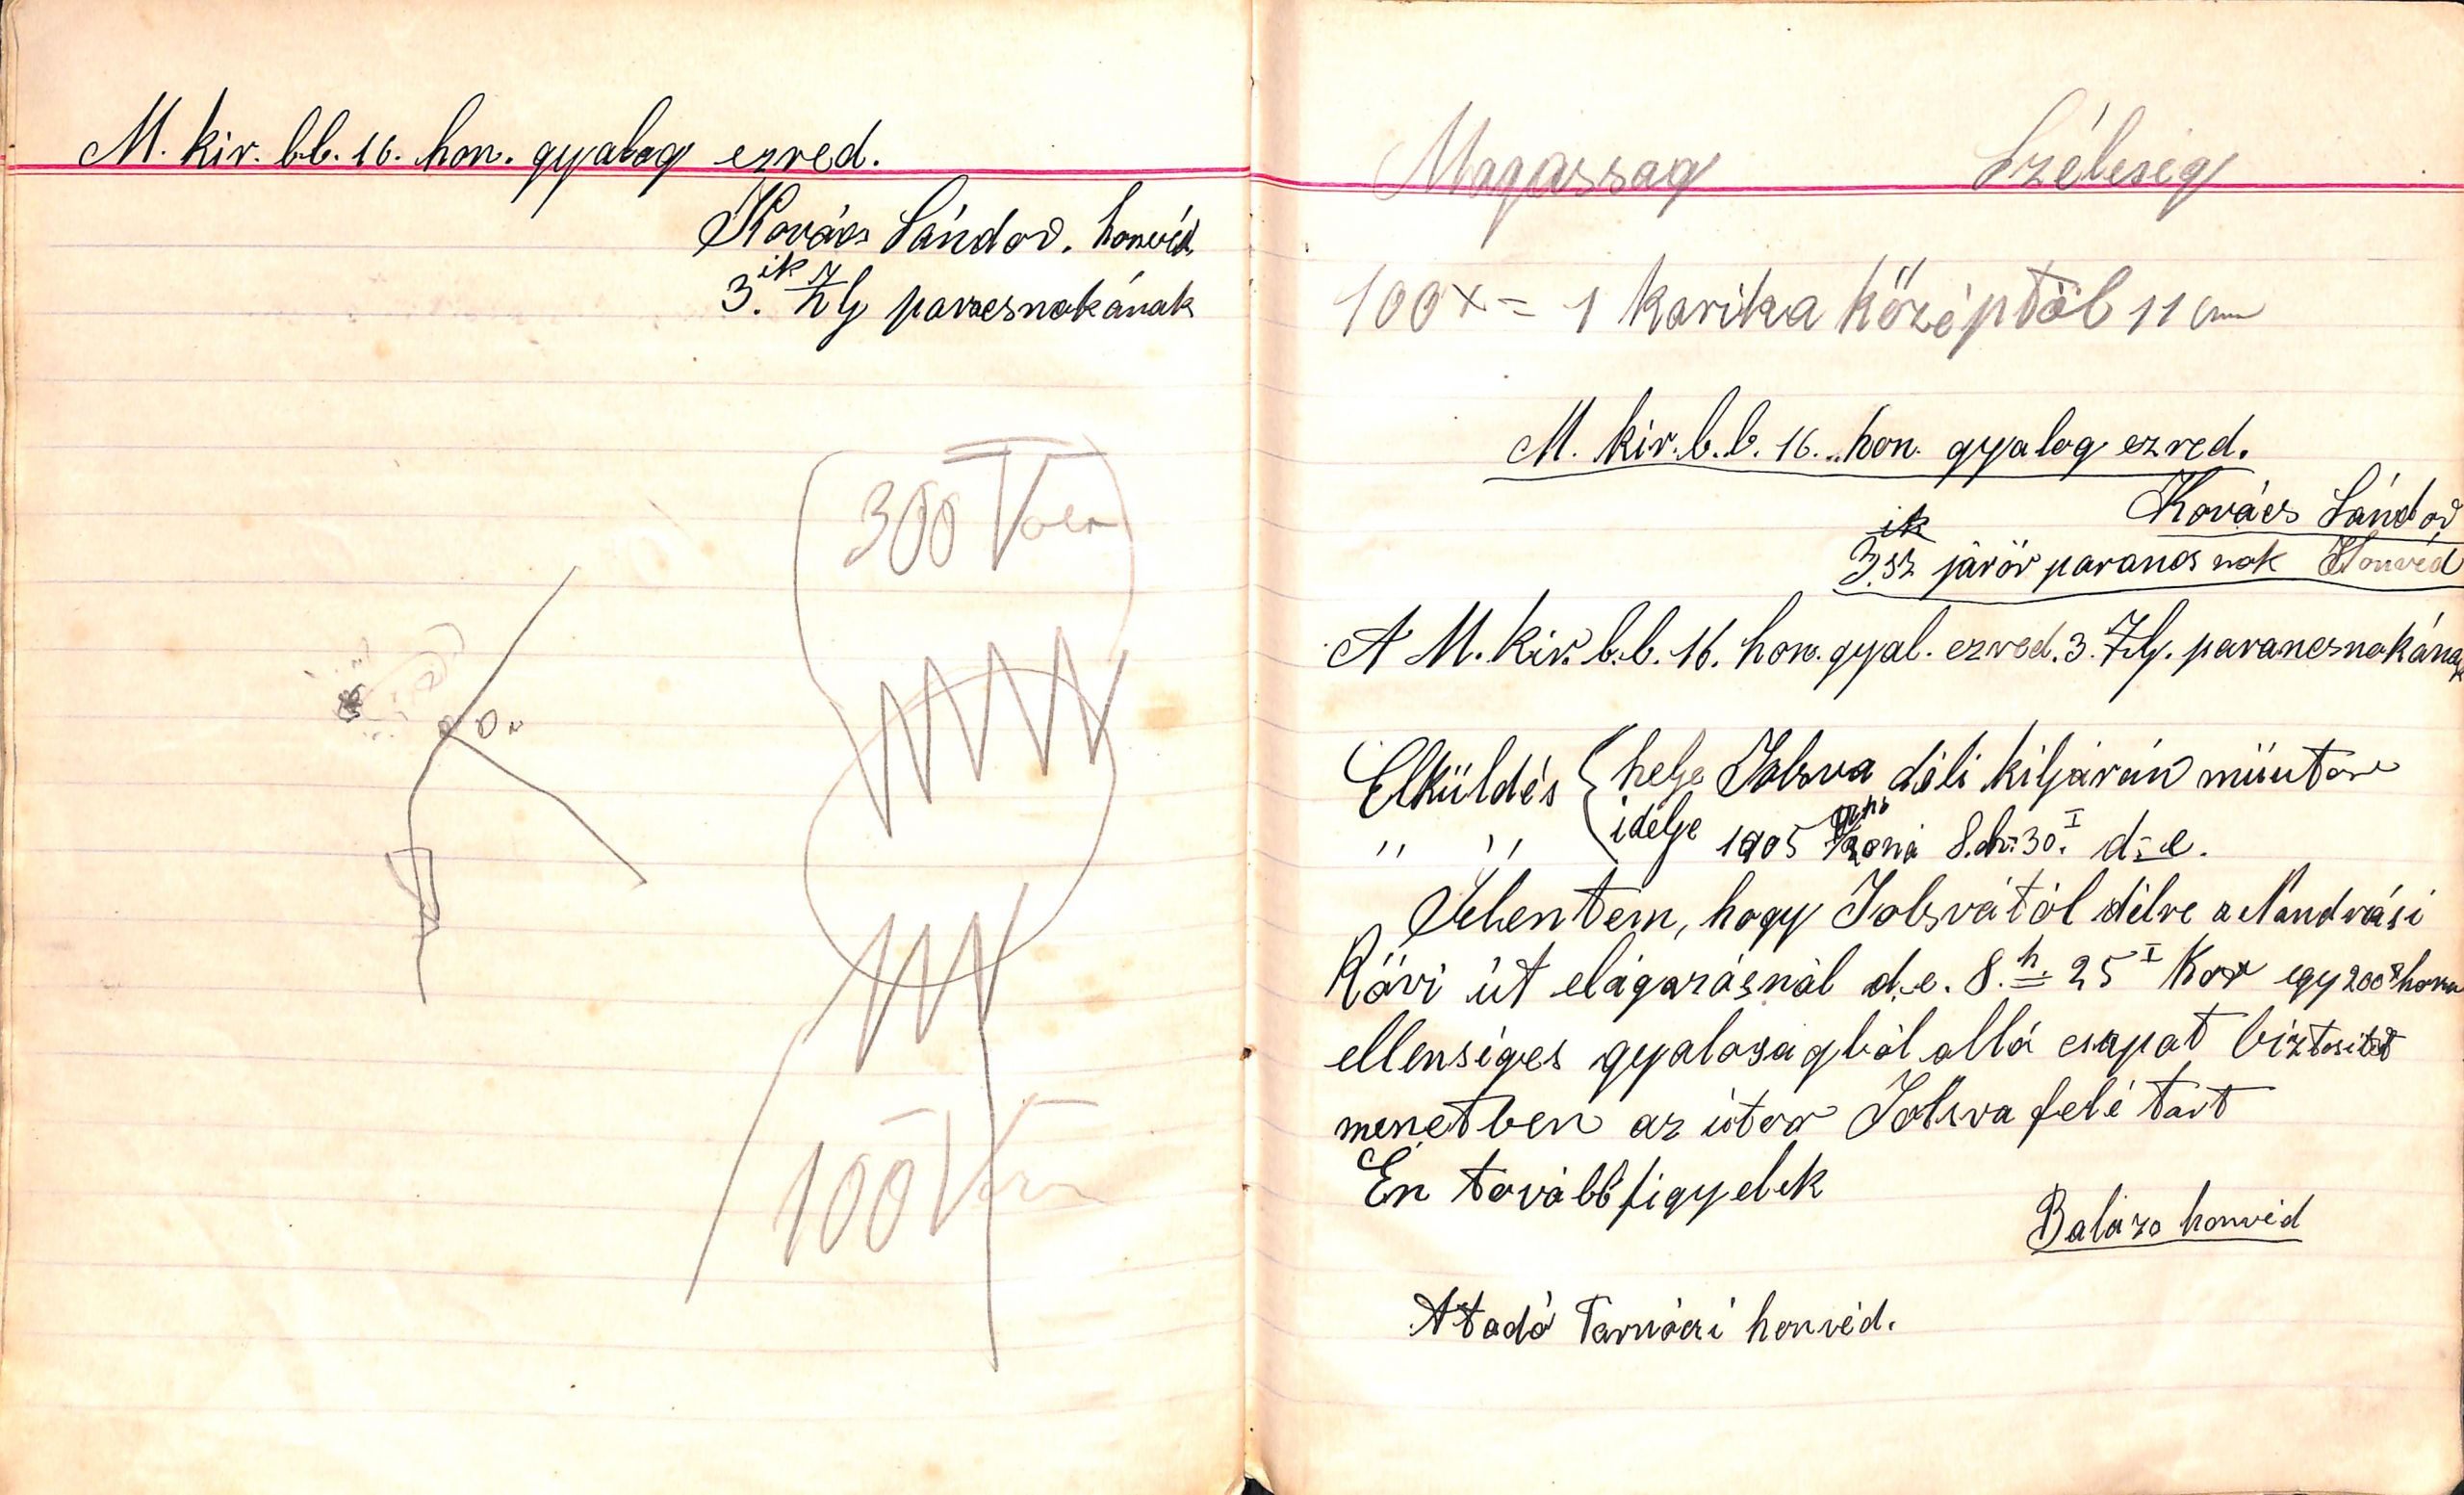 M. kir. bb. 16. hon. gyalog ezred.
Kovács Sándor. honvéd
3. ik Zlj parancsnokának
300
100
Magassag Szélesig
100 x = 1 karika középtől 11 cm
M. kir. b. b. 16. hon. gyalog ezred.
Kovács Sándor
3. sz járőr parancs nok Honvéd
A M. kir. b. b. 16. hon. gyal. ezred. 3. Zlj. parancsnokának
Elküldés { helye Jolsva déli kiljárán müuton
" " idelye 1905 8. h. 30. I d. e.
Jelentem, hogy Jolsvától délre a Nandrási
Kövi út elágazásnál d. e. 8. h. 25 I Kor egy 200
ellenséges gyalosagból alló csapat biztositot
menetben az úton Jolsva felé tart
Én tovább figyelek
Balázs honvéd
Atadó honvéd.